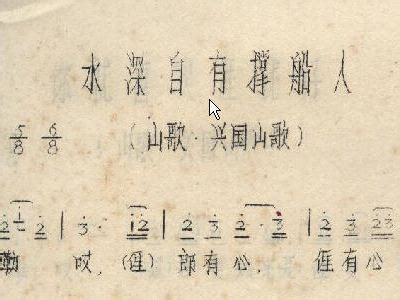 水深自有撑船人
5/8 6/8 (山歌·兴国山歌)
2 1 2 | 3· 12 | 2 3 2·3 | 2 3 23
哎, 郎有心, 有心